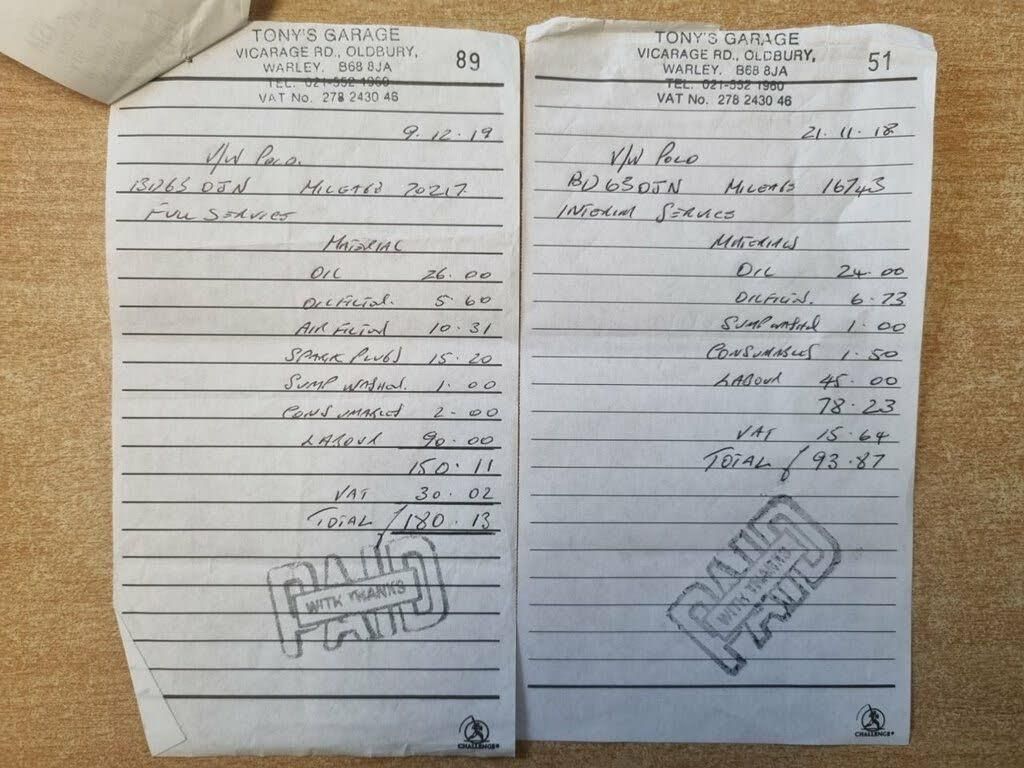 TONY'S GARAGE
VICARAGE RD., OLDBURY,
WARLEY. B68 8JA
TEL. 021-552 1960
VAT No. 278 2430 46
89
9.12.19
V/W POLO.
BD63 OJN MILEAGE 20217
FULL SERVICE
MATERIAL
OIL 26.00
OIL FILTER. 5.60
AIR FILTER 10.31
SPARK PLUGS 15.20
SUMP WASHER. 1.00
CONSUMABLES 2.00
LABOUR 90.00
150.11
VAT 30.02
TOTAL £180.13
PAID
WITH THANKS
PAID
CHALLENGE®
TONY'S GARAGE
VICARAGE RD., OLDBURY,
WARLEY. B68 8JA
TEL. 021-552 1960
VAT No. 278 2430 46
51
21.11.18
V/W POLO
BD63OJN MILEAGE 16743
INTERIM SERVICE
MATERIALS
OIL 24.00
OILFILTER. 6.73
SUMP WASHER 1.00
CONSUMABLES 1.50
LABOUR 45.00
78.23
VAT 15.64
TOTAL £93.87
PAID
WITH THANKS
PAID
CHALLENGE®